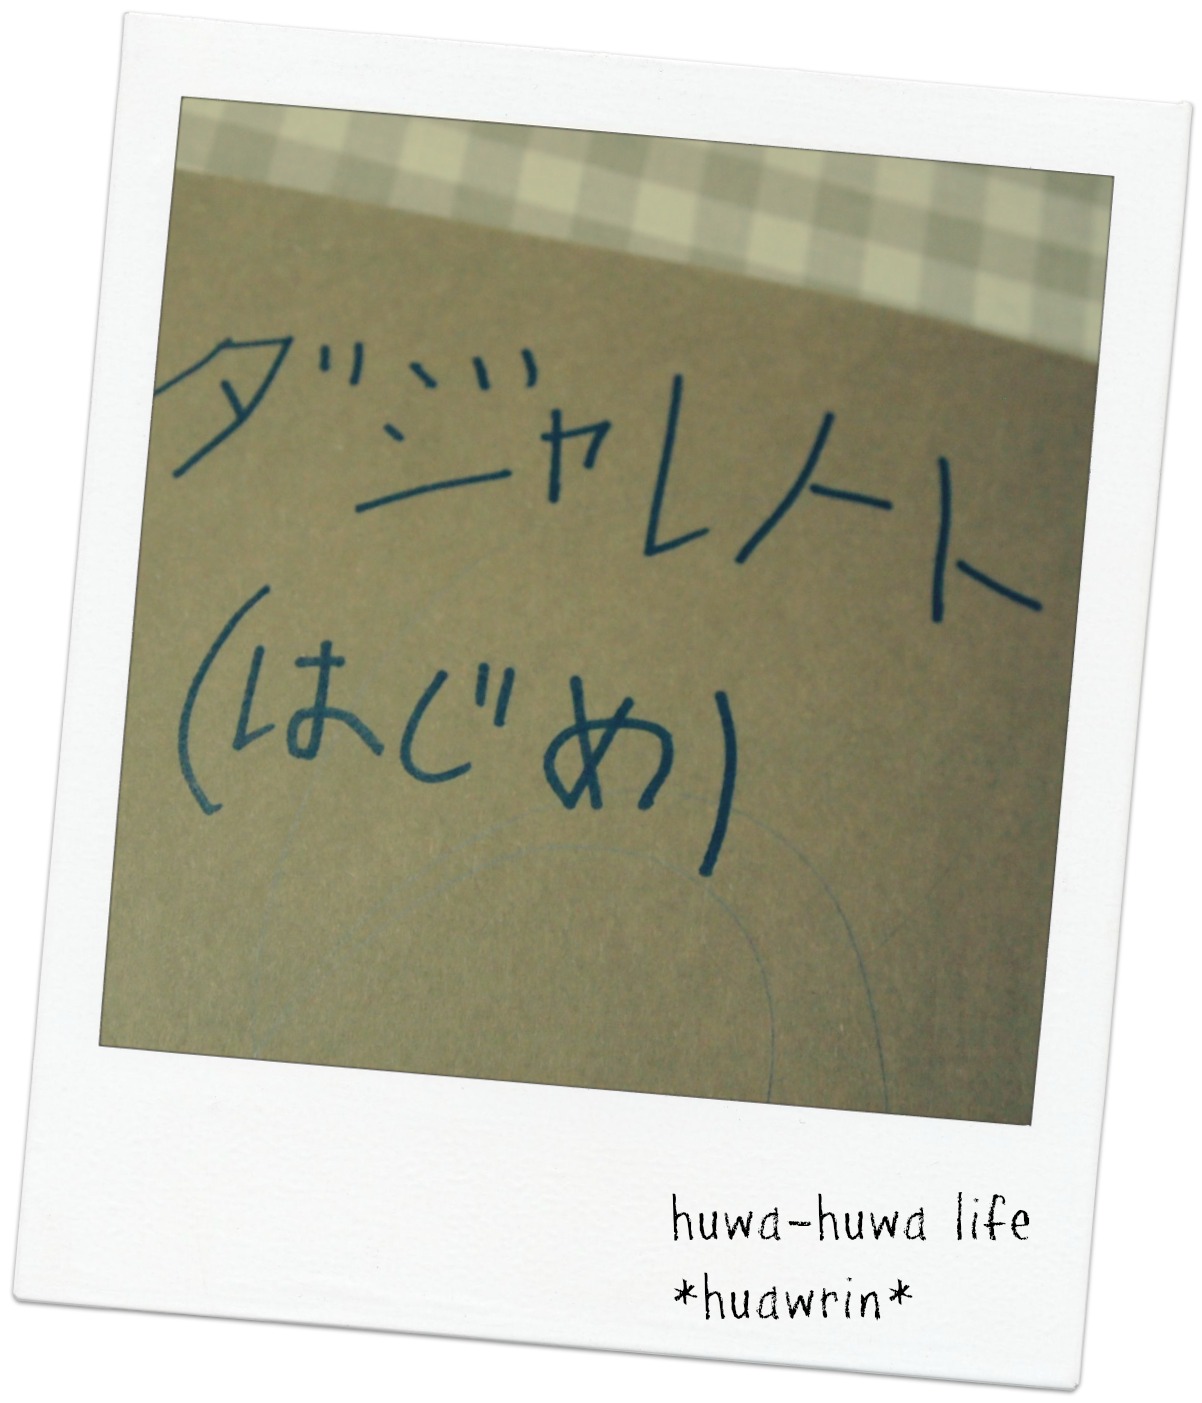 ダジャレノート
(はじめ)
huwa-huwa life
*huawrin*